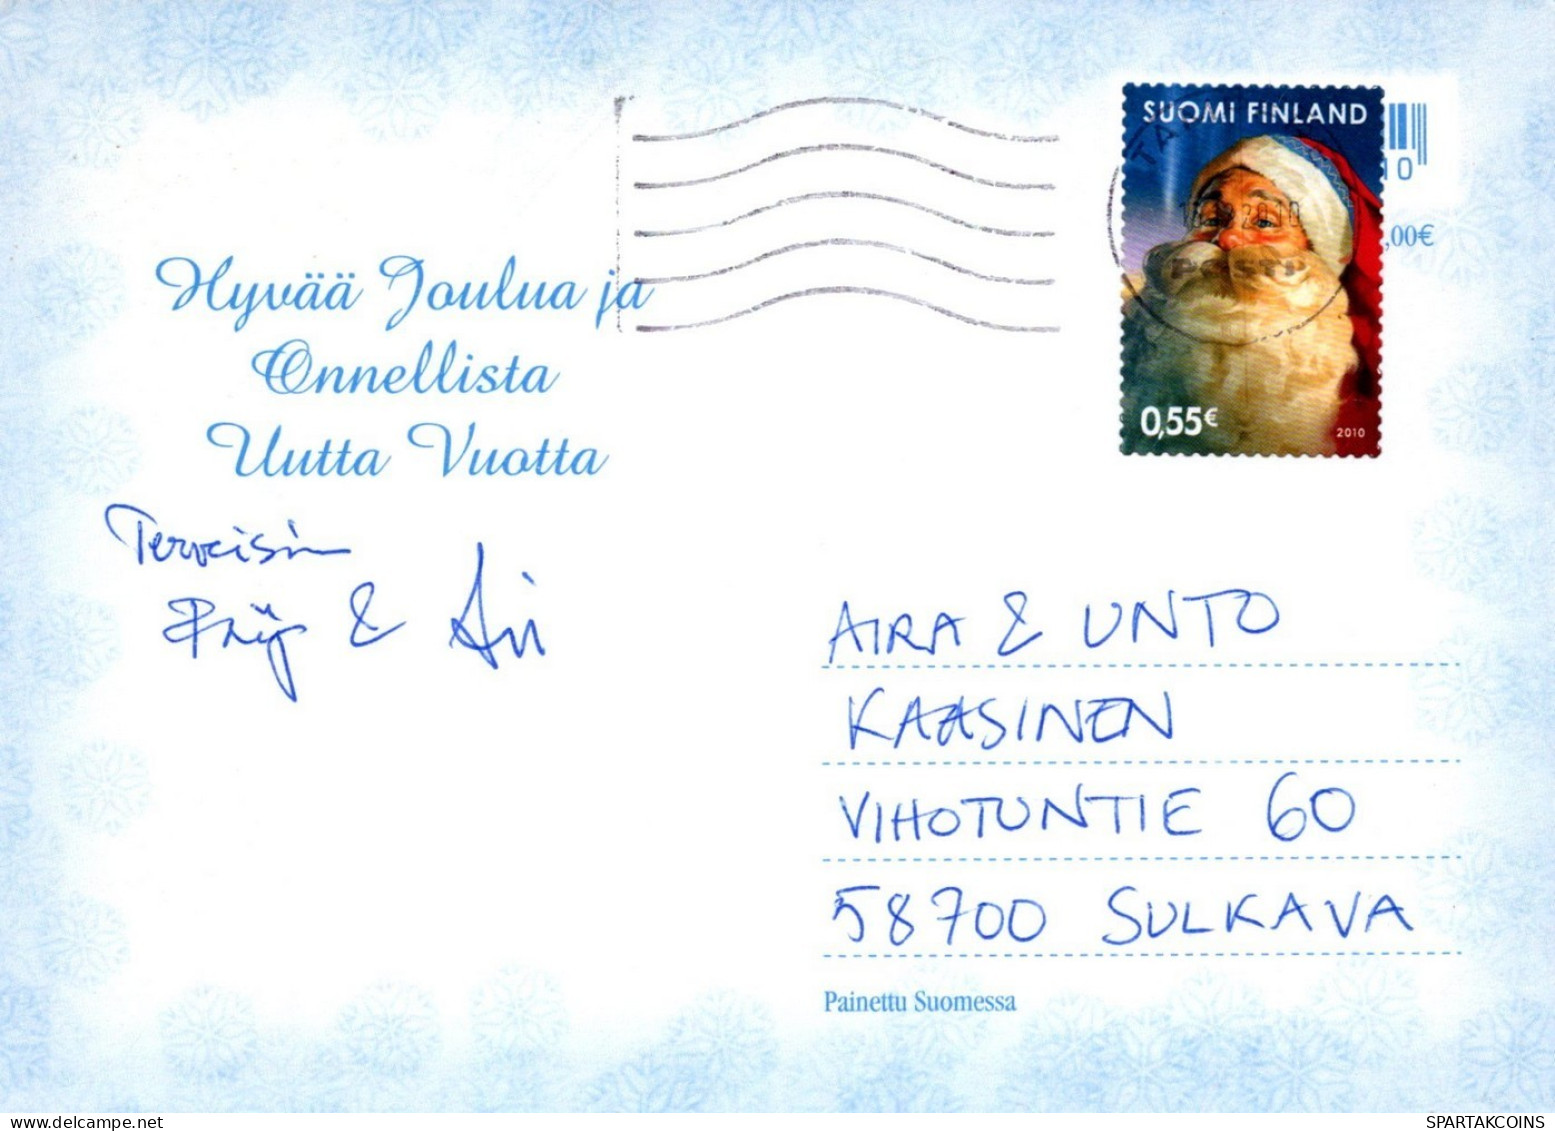 SUOMI FINLAND
10
,00€
POSTI
0,55€
2010
Hyvää Joulua ja
Onnellista
Uutta Vuotta
Terveisin
&
AIRA & UNTO
KAASINEN
VIHOTUNTIE 60
58700 SULKAVA
Painettu Suomessa
SPARTAKCOINS